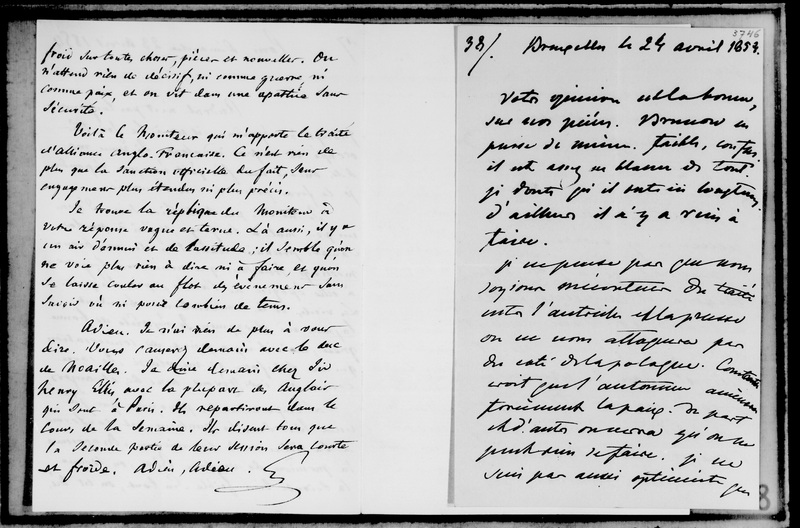 froid sur toutes choses, pièces et nouvelles. On
n'attend rien de décisif, ni comme guerre ni
comme paix, et on vit dans une apathie sans
sécurité.
Voilà le Moniteur qui m'apporte le traité
d'alliance Anglo-Française. Ce n'est rien de
plus que la sanction officielle du fait, sans
engagement plus étendu ni plus précis.
Je trouve la réplique du Moniteur à
votre réponse vague et terne. Là aussi, il y a
un air d'ennui et de lassitude; il semble qu'on
ne voie plus rien à dire ni à faire, et qu'on
se laisse couler au flot des évènemens sans
savoir où ni pour combien de tems.
Adieu. Je n'ai rien de plus à vous
dire. Vous causerez demain avec le duc
de Noailles. Je dîne demain chez Sir
Henry Ellis avec la plupart des Anglais
qui sont à Paris. Ils repartiront dans le
cours de la semaine. Ils disent tous que
la seconde partie de leur session sera courte
et froide. Adieu, Adieu. G
3746
38/. Bruxelles le 24 avril 1854.
Votre opinion est la bonne,
sur nos pièces. Brunnow en
pense de même. faible, confus.
il est assez en blame de tout.
je doute qu'il reste ici longtems,
d'ailleurs il n'y a rien à
faire.
je ne pense pas que nous
soyions mécontens du traité
entre l'Autriche et la Prusse
on ne nous attaquera pas
du coté de la pologne. Constantin
croit que l'automne amènera
forcément la paix. De part
et d'autre on verra qu'on ne
peut rien se faire. je ne
suis pas aussi optimiste que
8